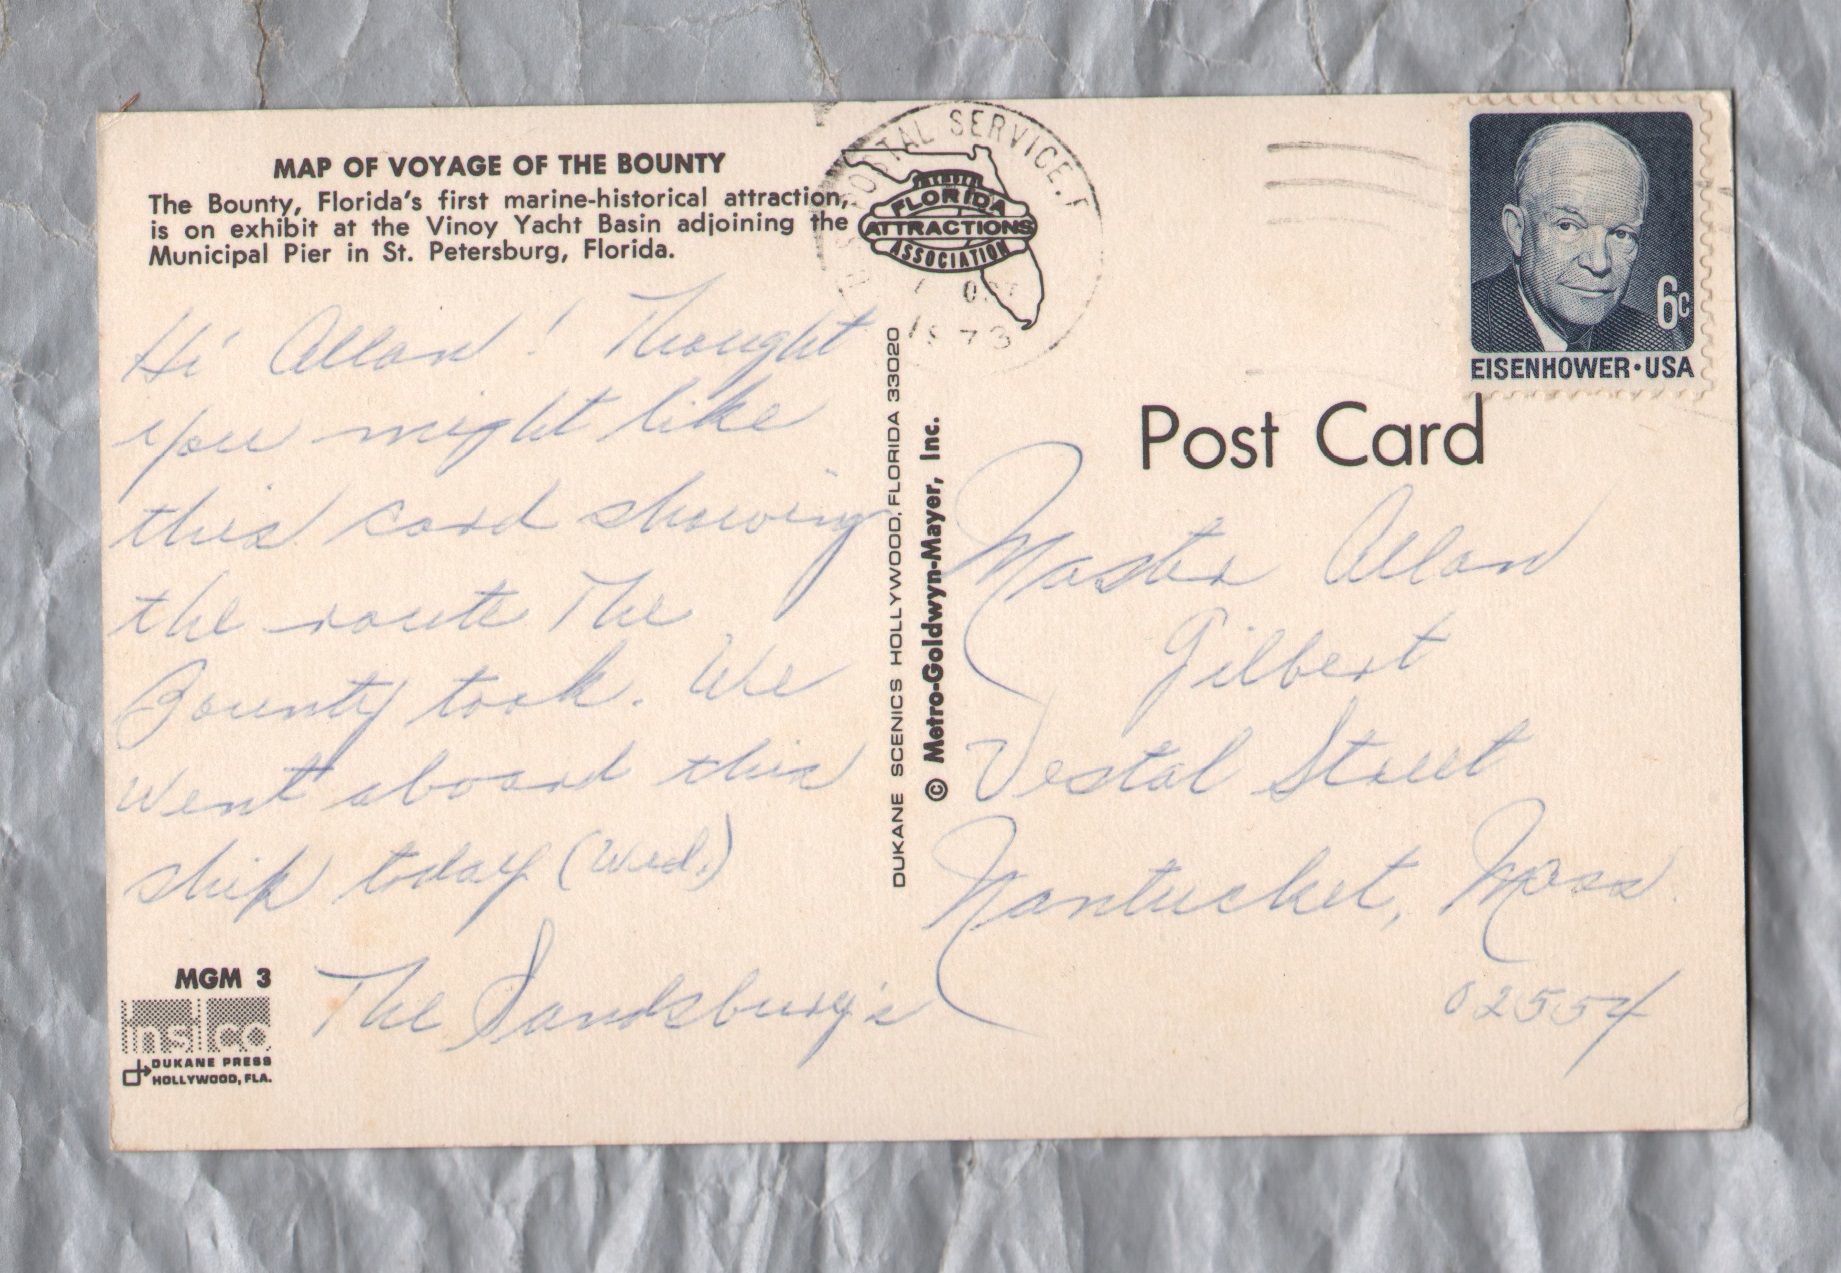 MAP OF VOYAGE OF THE BOUNTY
The Bounty, Florida's first marine-historical attraction,
is on exhibit at the Vinoy Yacht Basin adjoining the
Municipal Pier in St. Petersburg, Florida.
Hi Allan! Thought
you might like
this card showing
the route The
Bounty took. We
went aboard this
ship today (Wed.)
The Sandsbury's
MGM 3
insco
DUKANE PRESS
HOLLYWOOD, FLA.
DUKANE SCENICS HOLLYWOOD, FLORIDA 33020
© Metro-Goldwyn-Mayer, Inc.
POSTAL SERVICE, F
1973
MEMBER
FLORIDA
ATTRACTIONS
ASSOCIATION
6c
EISENHOWER·USA
Post Card
Master Allan
Gilbert
Vestal Street
Nantucket, Mass.
02554